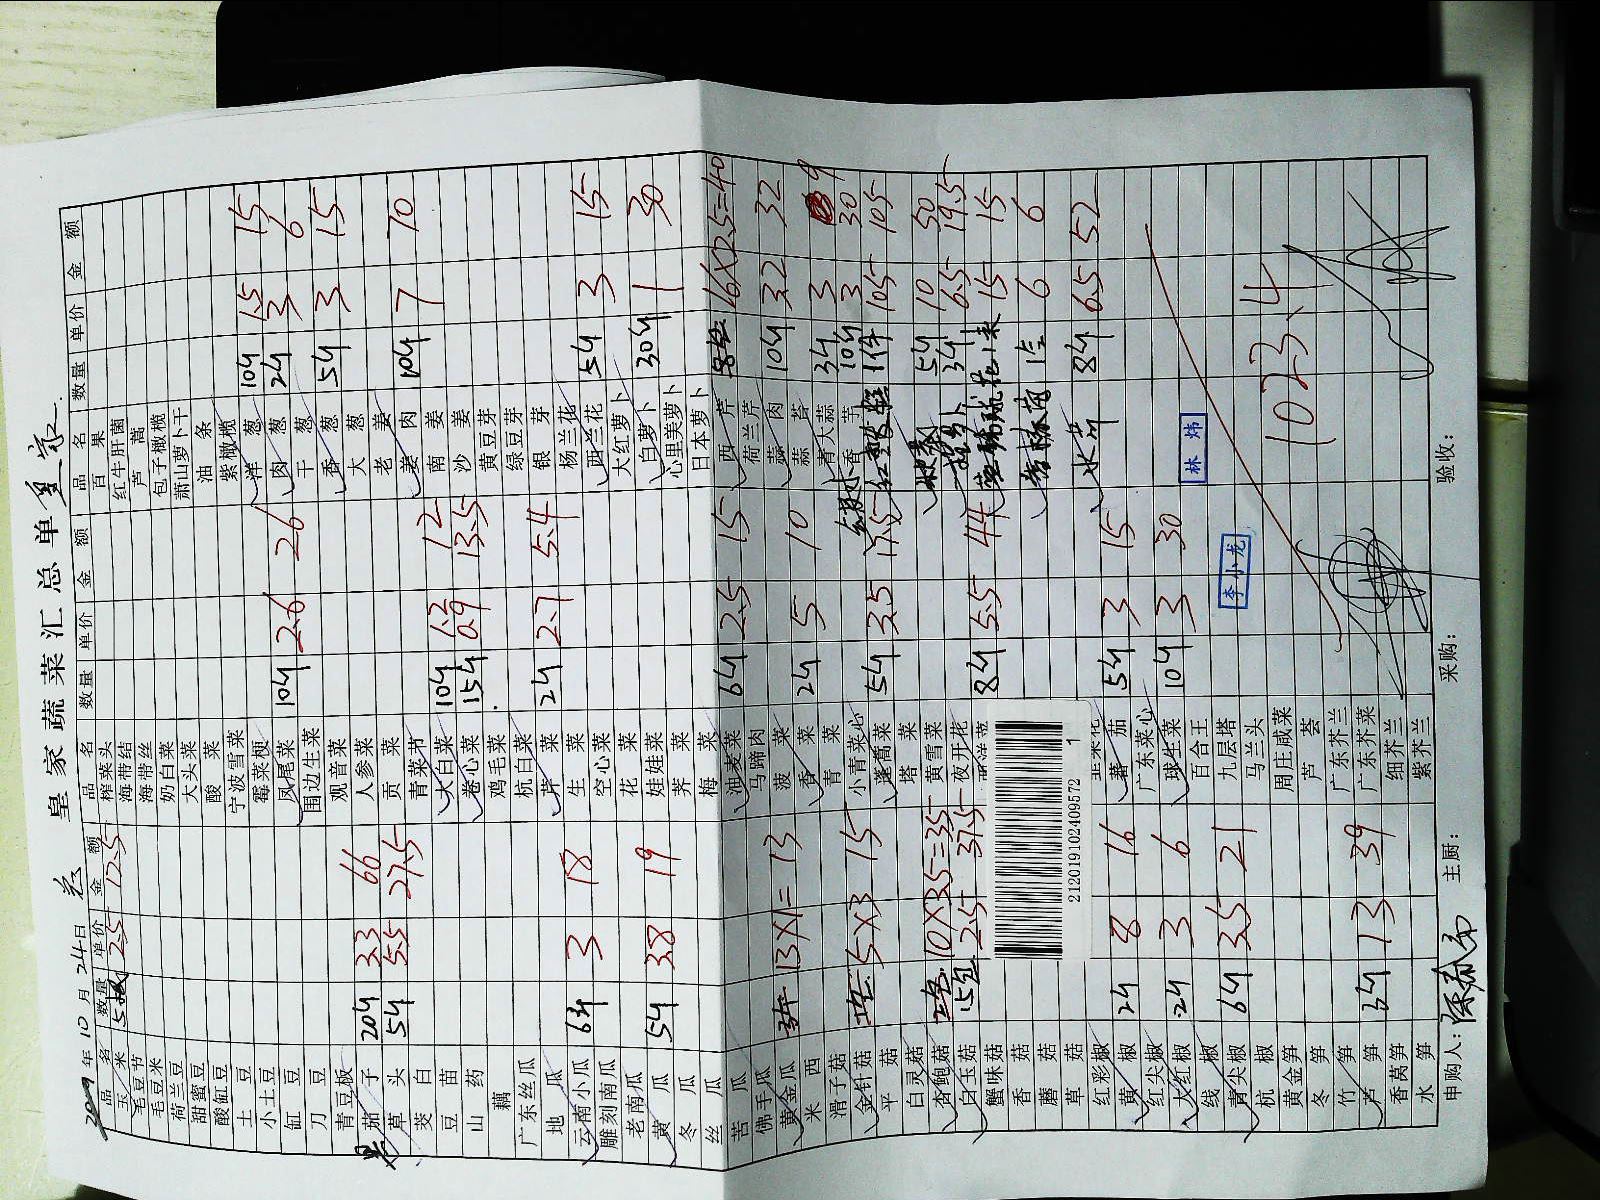 皇家蔬菜汇总单
10月24日
品名 数量 单价 金额 品名 数量 单价 金额 品名 数量 单价 金额
玉米 2.5 12.5 榨菜头 百果
毛豆节 海带结 红牛肝菌
毛豆米 海带丝 芦蒿
荷兰豆 奶白菜 包子橄榄
甜蜜豆 大头菜 萧山萝卜干
酸缸豆 酸菜 油条
土豆 宁波雪菜 紫橄榄
小土豆 霉菜梗 洋葱 10斤 1.5 15
缸豆 凤尾菜 10斤 2.6 26 肉葱 2斤 3 6
刀豆 围边生菜 干葱
青豆板 观音菜 香葱 5斤 3 15
茄子 20斤 3.3 66 人参菜 大葱
草头 5斤 5.5 27.5 贡菜 老姜
茭白 青菜节 姜肉 10斤 7 10
豆苗 大白菜 10斤 1.2 12 南姜
山药 卷心菜 15斤 0.9 13.5 沙姜
藕 鸡毛菜 黄豆芽
广东丝瓜 杭白菜 绿豆芽
地瓜 芹菜 2斤 2.7 5.4 银芽
云南小瓜 6斤 3 18 生菜 杨兰花
雕刻南瓜 空心菜 西兰花 5斤 3 15
老南瓜 花菜 大红萝卜
黄瓜 5斤 3.8 19 娃娃菜 白萝卜 30斤 1 30
冬瓜 荠菜 心里美萝卜
丝瓜 梅菜 日本萝卜
苦瓜 油麦菜 6斤 2.5 15 西芹 16×2.5=40
佛手瓜 马蹄肉 荷兰芹
黄金瓜 13×1=13 菠菜 蒜肉 10斤 3.2 32
米西 香菜 2斤 5 10 蒜苔
滑子菇 青菜 青大蒜 3斤 3 9
金针菇 5×3 15 小青菜心 香芋 10斤 3 30
平菇 蓬蒿菜 5斤 3.5 17.5 1件 105 105
白灵菇 塔菜
杏鲍菇 10×3.5=35 黄雪菜 5斤 10 50
白玉菇 15包 2.5 37.5 夜开花 8斤 5.5 44 3斤 6.5 19.5
蟹味菇 15 15
香菇 6 6
蘑菇
草菇 水芹 8斤 6.5 52
红彩椒
黄椒 2斤 8 16 蕃茄 5斤 3 15
红尖椒 广东菜心
大红椒 2斤 3 6 球生菜 10斤 3 30
线椒 百合王
青尖椒 6斤 3.5 21 九层塔
杭椒 马兰头
黄金笋 周庄咸菜
冬笋 芦荟
竹笋 广东芥兰
芦笋 3斤 13 39 广东芥菜
香莴笋 细芥兰
水笋 紫芥兰
2120191024095721
林炜
李小龙
1023.4
申购人: 主厨: 采购: 验收: